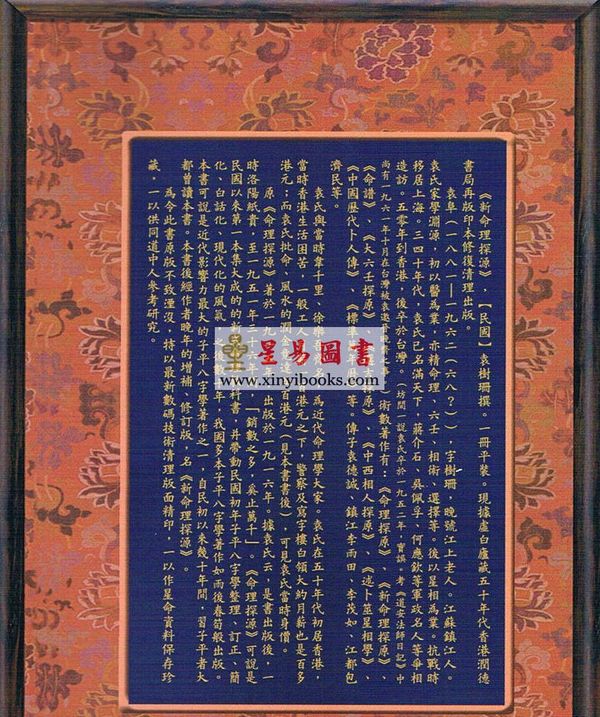 《新命理探源》,【民國】袁樹珊撰。一冊平裝。現據虛白廬藏五十年代香港潤德
書局再版印本修復清理出版。
袁阜(一八八一—一九六二(六八?)),字樹珊,晚號江上老人。江蘇鎮江人。
袁氏家學淵源,初以醫為業,亦精命理、六壬、相術、選擇等。後以星相為業。抗戰時
移居上海。三四十年代,袁氏已名滿天下,蔣介石、吳佩孚、何應欽等軍政名人等爭相
造訪。五零年到香港,後卒於台灣。(坊間一說袁氏卒於一九五二年,實誤。考《道安法師日記》中
尚有一九六一年十月在台灣被袁邀
術數著作有:《命理探源》、《新命理探源》、
《命譜》、《大六壬探源》、
《中西相人探源》、《述卜筮星相學》、
《中國歷代卜人傳》、《標準
等。傳子袁德誠、鎮江李雨田、李茂如、江都包
濟民等。
袁氏與當時韋千里、徐樂吾
為近代命理學大家。袁氏在五十年代初居香港,
當時香港生活困苦,一般工人
港元之下,警察及寫字樓白領大約月薪也是百多
港元;而袁氏批命、風水的潤金
百港元(見本書書後),可見袁氏當時身價。
原《命理探源》著於一九一
出版於一九一六年。據袁氏云,是書出版後,一
時洛陽紙貴,至一九五一年三十
「銷數之多,奚止萬千」。《命理探源》可說是
民國以來第一本集大成的的新
科書,并帶動民國初年子平八字學整理、訂正、簡
化、白話化、現代化的風氣。之後數十年,我國多本子平八字學著作如雨後春筍般出版。
本書可說是近代影響力最大的子平八字學著作之一,自民初以來幾十年間,習子平者大
都曾讀本書。本書後經作者晚年的增補、修訂版,名《新命理探源》。
為令此書原版不致湮沒,特以最新數碼技術清理版面精印,一以作星命資料保存珍
藏,一以供同道中人參考研究。
星易圖書
www.xinyibooks.com